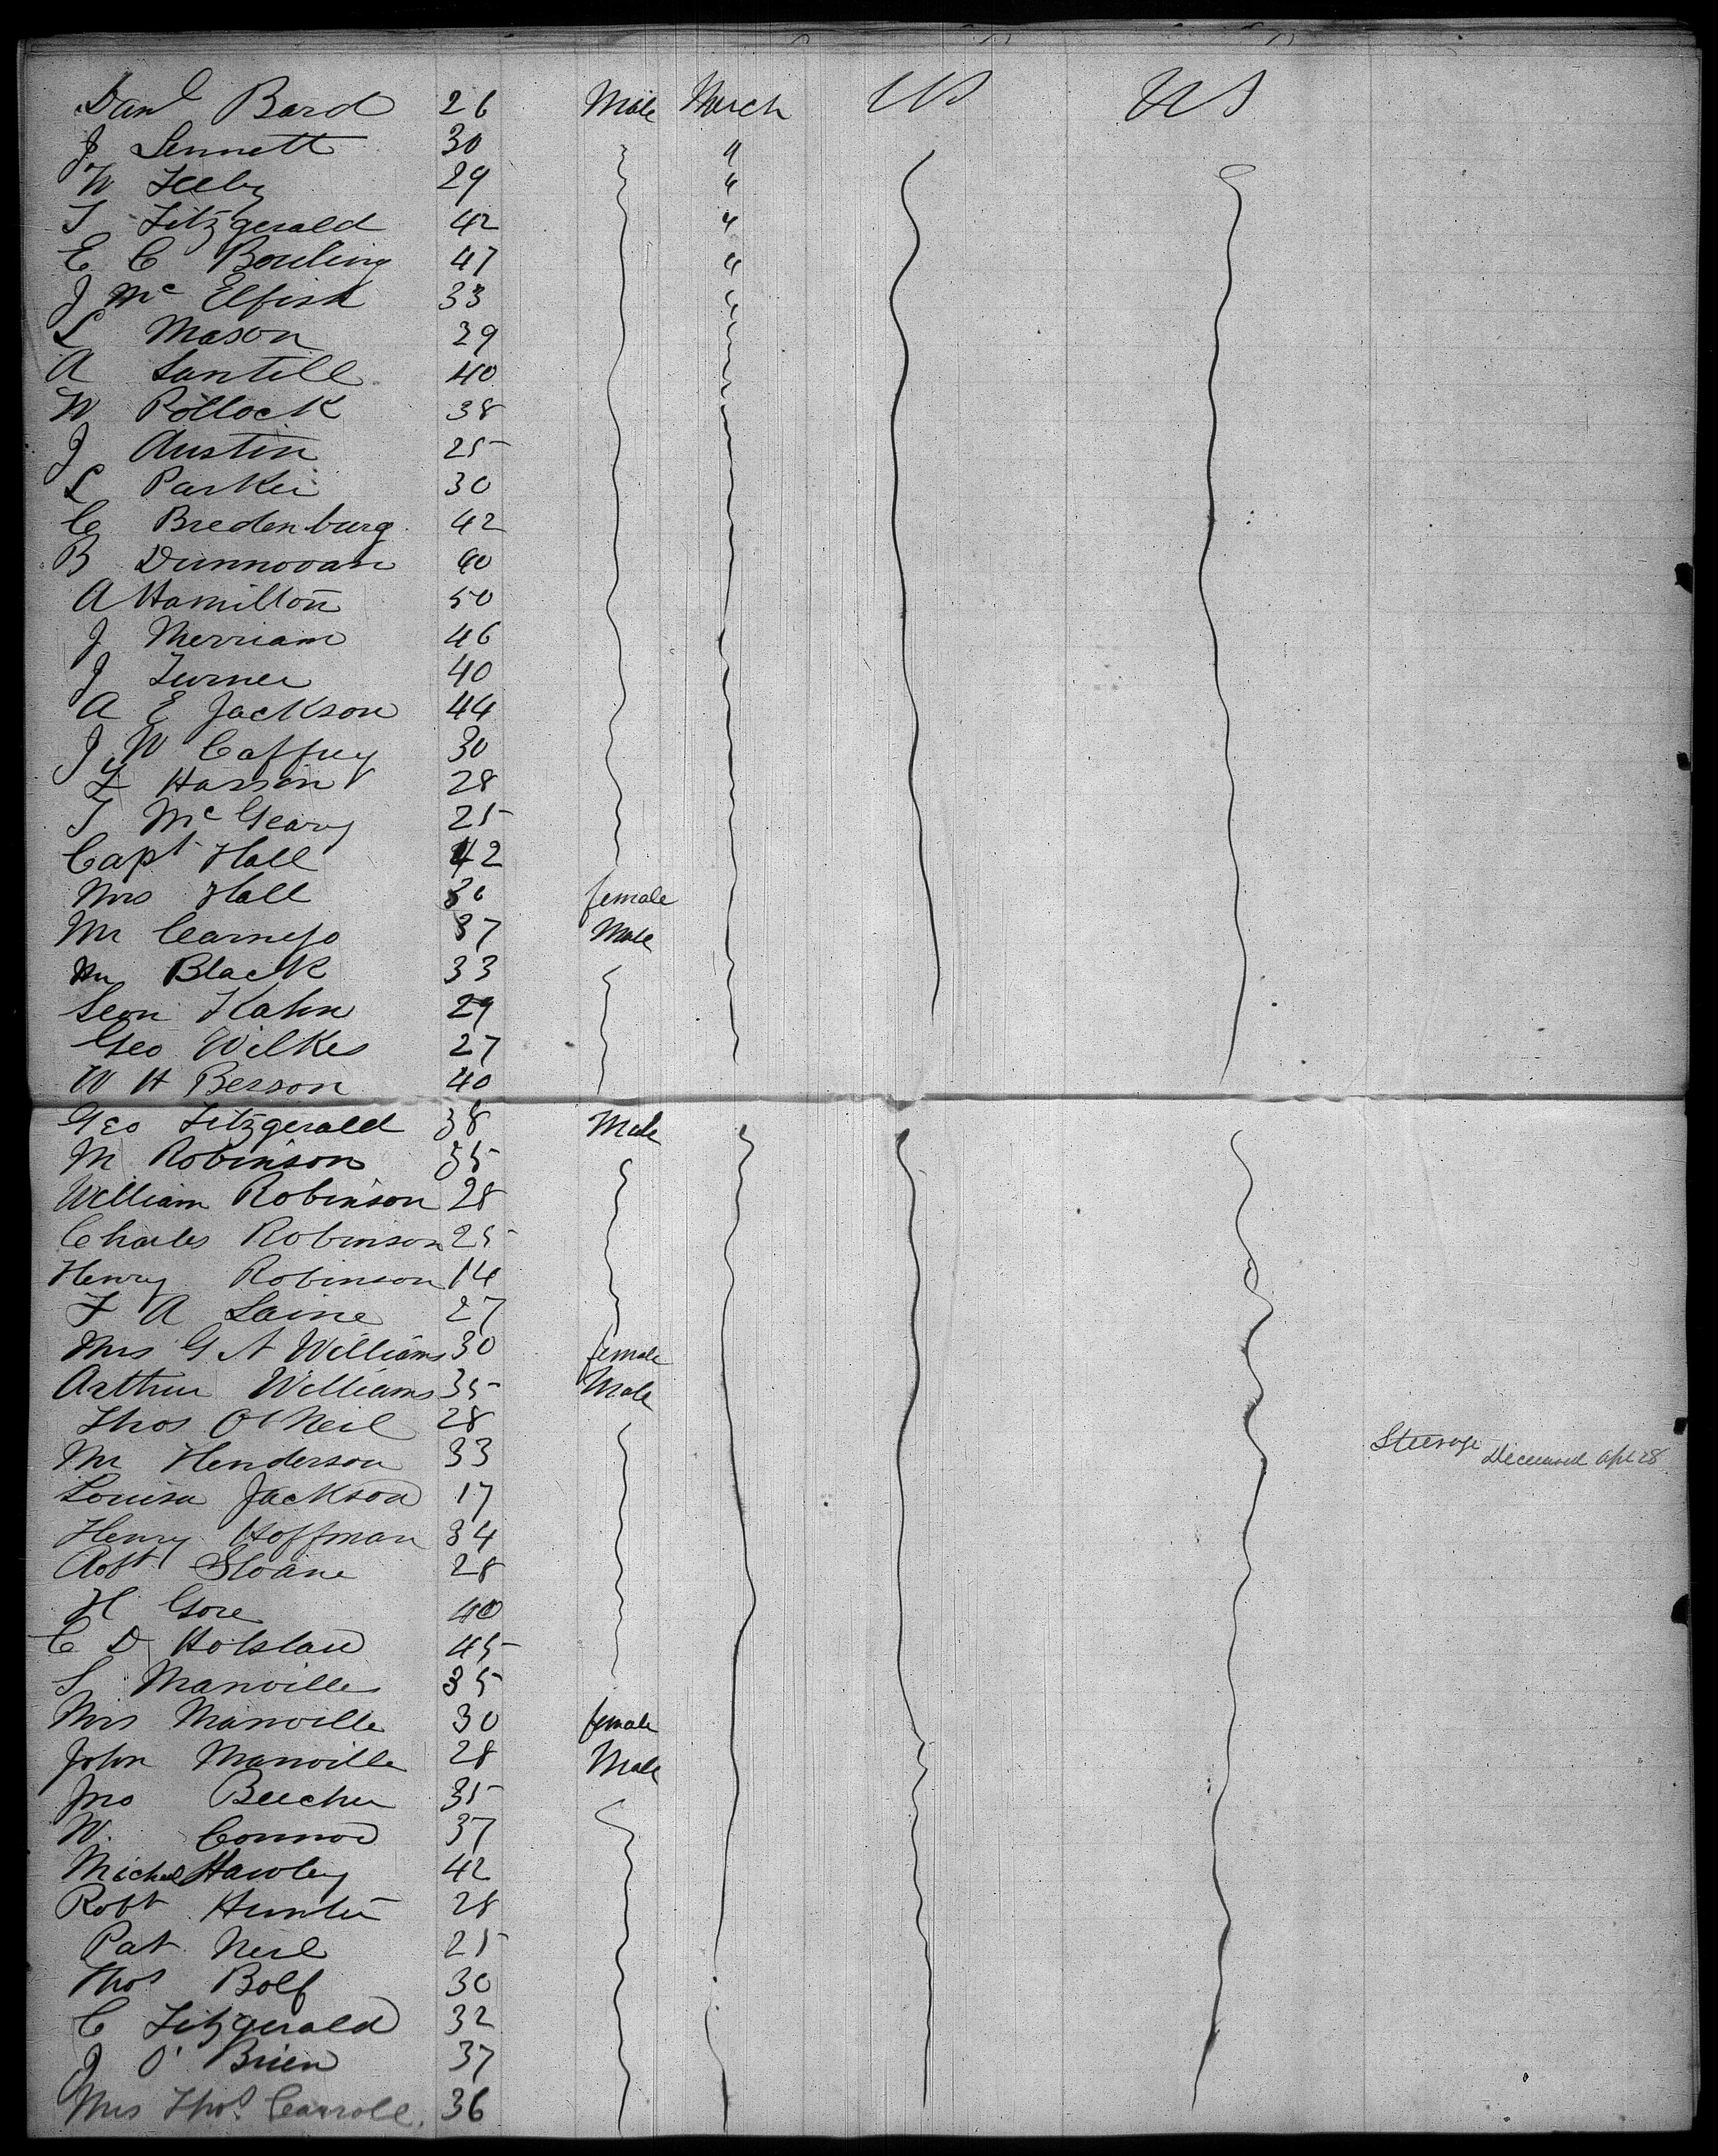 Danl Bard 26 Male March US US
J Sennett 30 "
W Feeby 29 "
T Fitzgerald 42 "
E C Bowling 47 "
J Mc Elfish 33 "
L Mason 29
A Santell 40
W Pollock 38
J Austin 25
L Parker 30
C Bredenburg 42
B Dunnovan 40
A Hamilton 50
J Merriam 46
J Turner 40
A E Jackson 44
J W Caffrey 30
F Hassin 28
T McGeary 25
Capt Hall 42
Mrs Hall 30 female
Mr Cornejo 37 Male
Mr Black 33
Leon Kahn 29
Geo Wilkes 27
W H Berson 40
Geo Fitzgerald 38 Male
M Robinson 35
William Robinson 28
Charles Robinson 25
Henry Robinson 14
F A Laine 27
Mrs G A Williams 30 female
Arthur Williams 35 Male
Thos O'Neil 28
Mr Henderson 33 Steerage Deceased Apl 28
Louisa Jackson 17
Henry Hoffman 34
Robt Sloane 28
H Gore 40
C D Holslaw 45
S Manville 35
Mrs Manville 30 female
John Manville 28 Male
Jno Beecher 35
W. Connor 37
Michael Hawley 42
Robt Hunter 28
Pat Neil 25
Thos Bolf 30
C Fitzgerald 32
J O'Brien 37
Mrs Thos. Carroll. 36